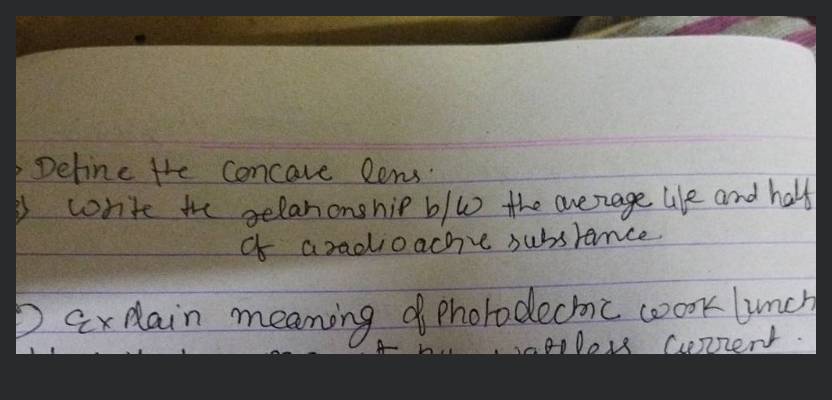 Define the concave lens.
Write the relationship b/w the average life and half
of a radioactive substance
Explain meaning of photoelectric work funct
wattless current.